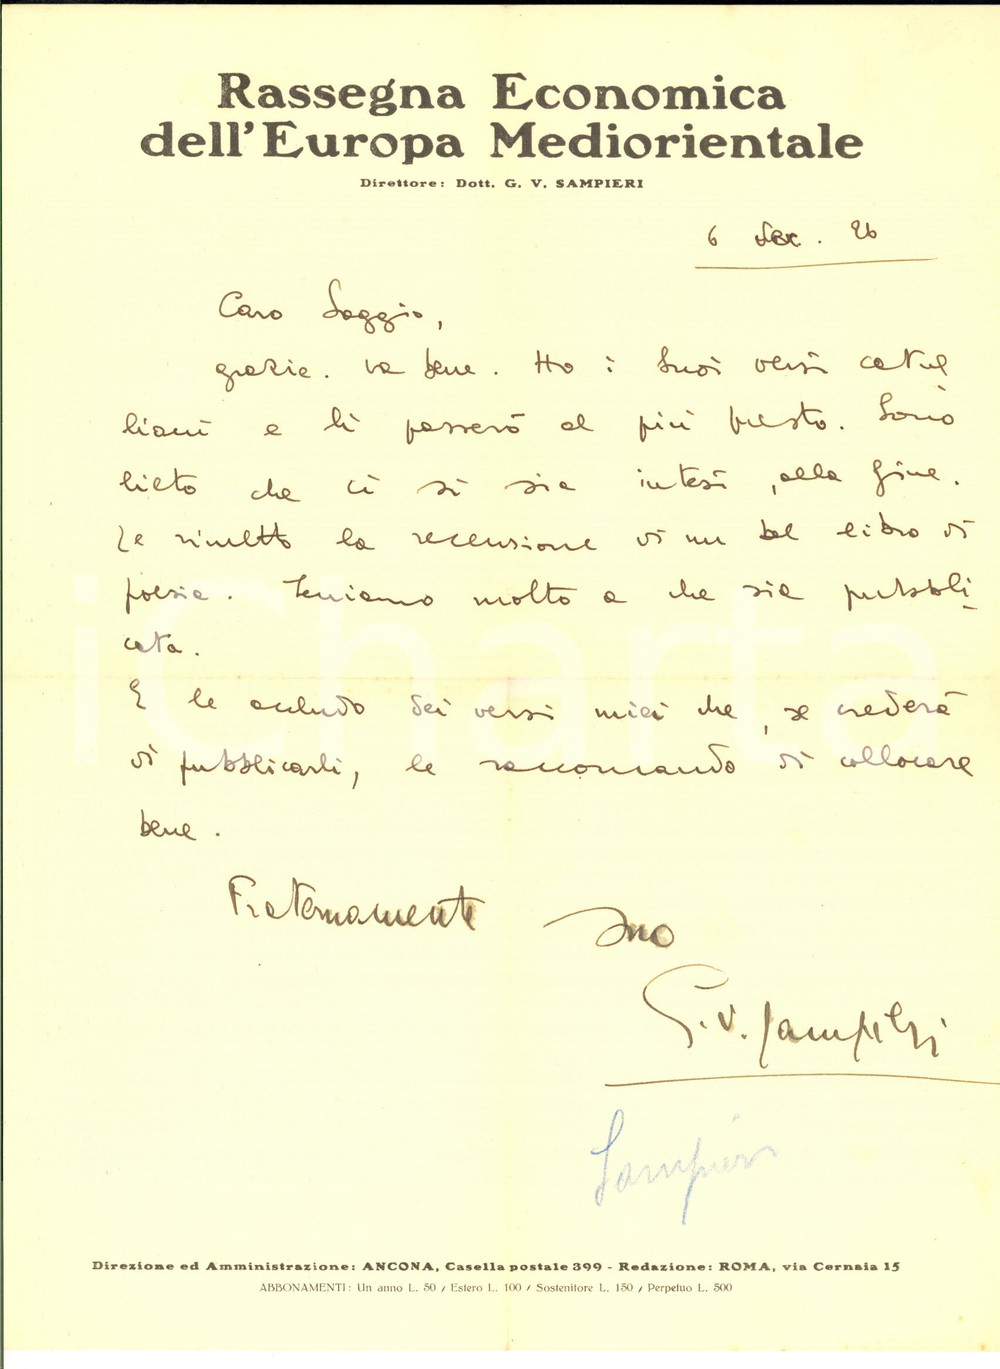 Rassegna Economica
dell'Europa Mediorientale
Direttore: Dott. G. V. SAMPIERI
6 dec. 26
Caro Saggio,
grazie. va bene. Ho i Suoi versi catul
liani e li passerò al più presto. Sono
lieto che ci si sia intesi, alla fine.
Le rimetto la recensione di un bel libro di
poesia. Teniamo molto a che sia pubbli-
cata.
E le accludo dei versi miei che, se crederà
di pubblicarli, le raccomando di collocare
bene.
Fraternamente Suo
G. V. Sampieri
Sampieri
iCharta
Direzione ed Amministrazione: ANCONA, Casella postale 399 - Redazione: ROMA, via Cernaia 15
ABBONAMENTI: Un anno L. 50 / Estero L. 100 / Sostenitore L. 150 / Perpetuo L. 500